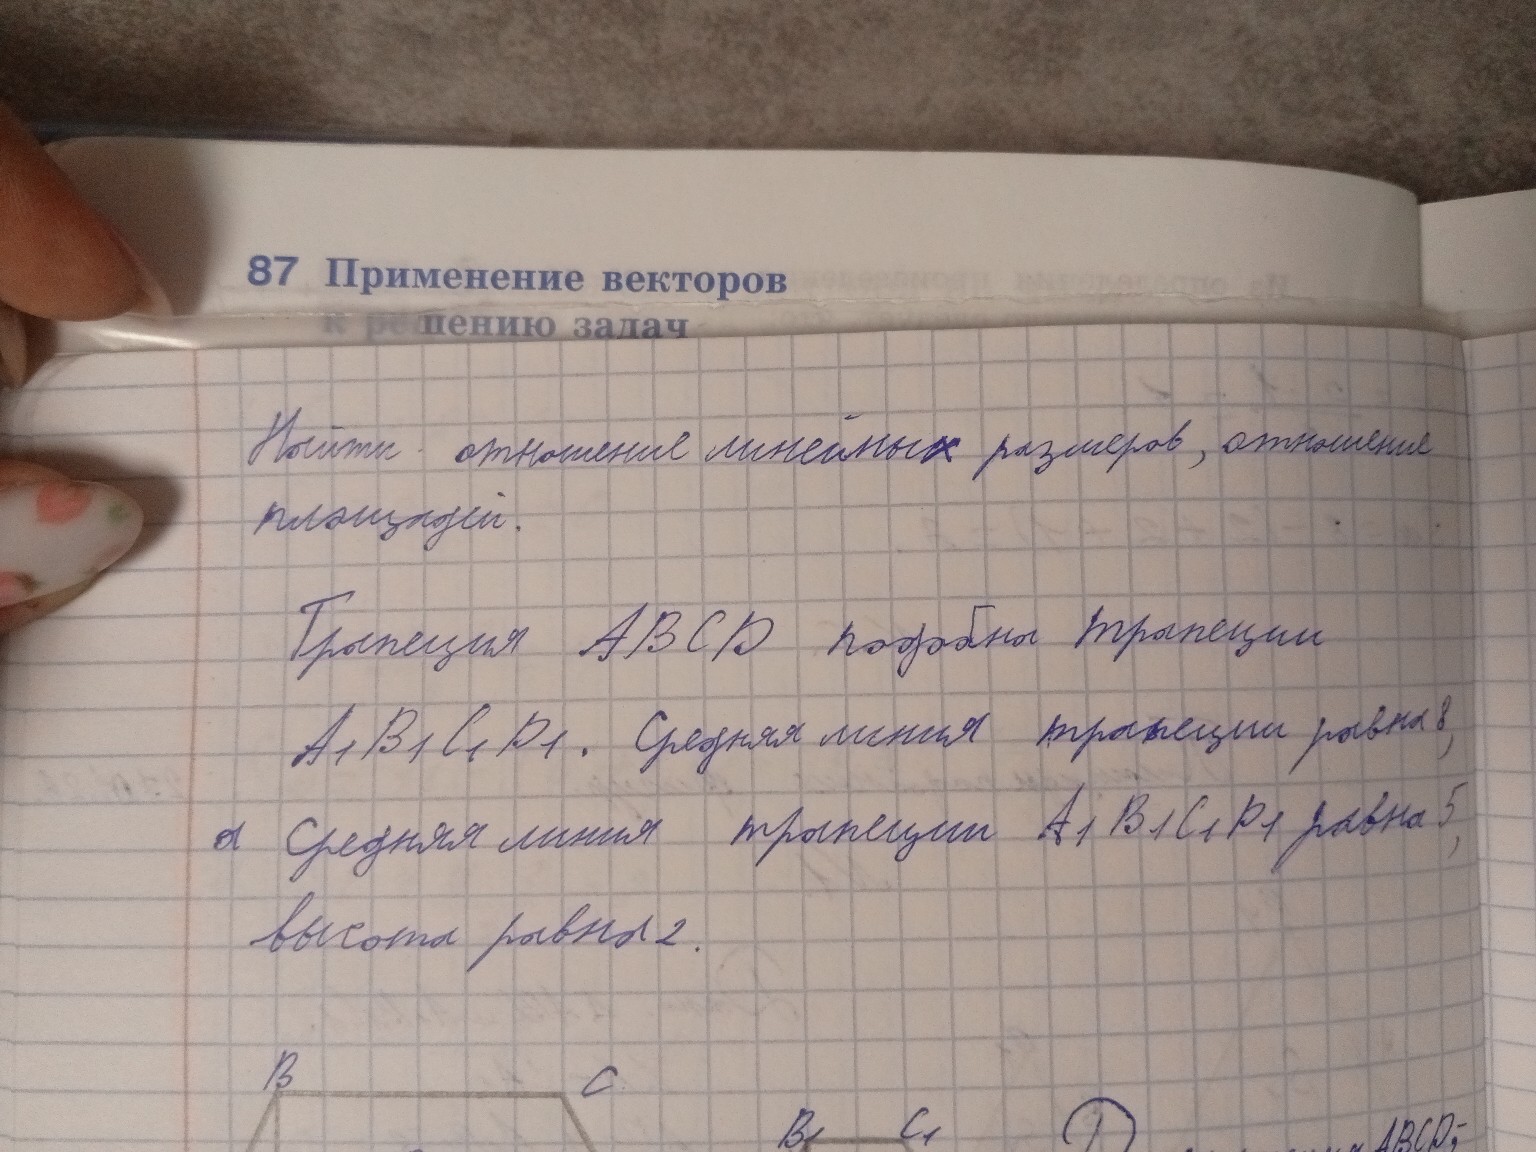 87 Применение векторов
к решению задач
Найти отношение линейных размеров, отношение
площадей.
Трапеция ABCD подобна трапеции
A1B1C1D1. Средняя линия трапеции равна 8,
а средняя линия трапеции A1B1C1D1 равна 5,
высота равна 2.
B C
B1 C1 1 ABCD